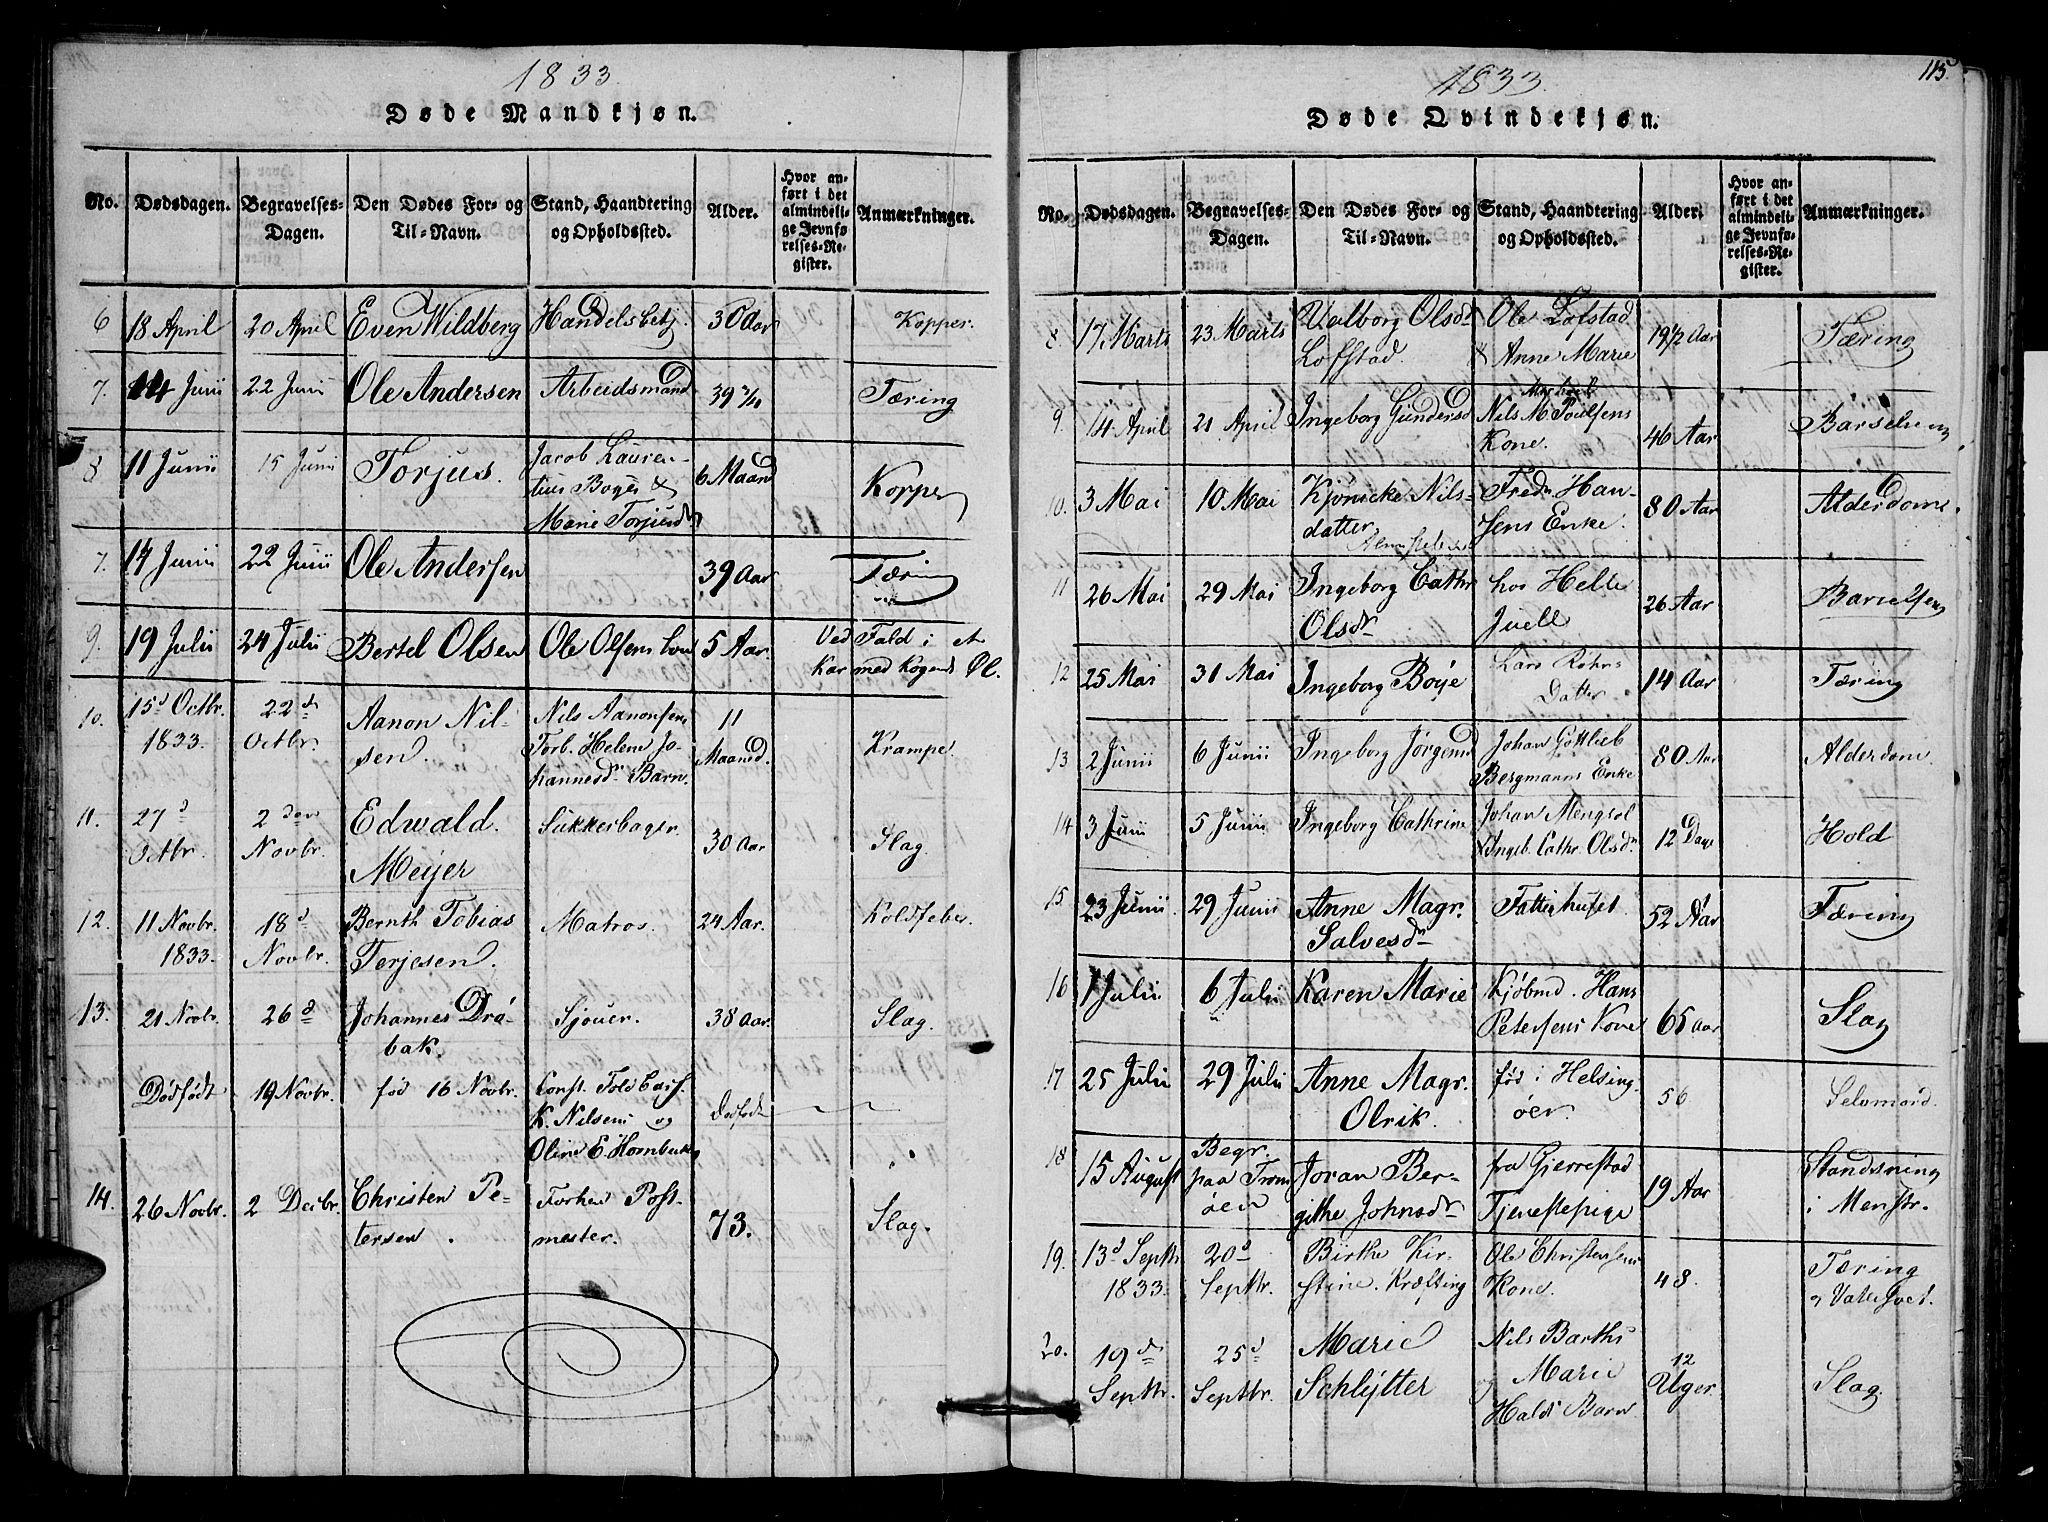 1833.
Døde Mandkjøn.
No. Dødsdagen. Begravelses-Dagen. Den Dødes For- og Til-Navn. Stand, Haandtering og Opholdssted. Alder. Hvor anført i det almindelige Jevnførelses-Register. Anmærkninger.
6 18 April 20 April Even Wildberg Handelsbetj. 30 Aar Kopper.
7. 14 Junii 22 Junii Ole Andersen Arbeidsmand 39 Tæring
8 11 Junii 15 Junii Torjus. Jacob Lauren-
tius Boyes &
Marie Torjusd 6 Maand Kopper
7. 14 Junii 22 Junii Ole Andersen 39 Aar Tæring
9. 19 Julii 24 Julii Bertel Olsen Ole Olsens Søn 5 Aar. Ved Fald i et
Kar med kogend Øl.
10. 15d Octbr. 1833. 22d Octbr. Aanon Nil-
sen. Nils Aanonsens
Torb. Helene Jo-
hannesdr Barn. 11 Maaned. Krampe.
11. 27d Octbr. 2den Novbr. Edwald.
Meijer Sukkerbager. 30 Aar Slag.
12. 11 Novbr. 1833. 18d Novbr. Bernth Tobias
Terjesen. Matros. 24 Aar. Koldfeber.
13. 21 Novbr. 26d Johannes Drø-
bak. Sjouer. 38 Aar. Slag.
Dødfødt 19 Novbr. fød 16 Novbr. Const. Told Cass.
K. Nilsens og
Oline E. Hornbeck Dødfødt
14. 26 Novbr. 2 Decbr. Christen Pe-
tersen. Forhen Post-
mester. 73. Slag.
1833.
115.
Døde Qvindekjøn.
No. Dødsdagen. Begravelses-Dagen. Den Dødes For- og Til-Navn. Stand, Haandtering og Opholdssted. Alder. Hvor anført i det almindelige Jevnførelses-Register. Anmærkninger.
8. 17 Marts 23 Marts Valborg Olsdr
Lofstad. Ole Lofstad
& Anne Marie 19 1/2 Aar Tæring
9. 14 April 21 April Ingeborg Gundersd Nils M Poulsens
Kone. 46 Aar Barselseng
10. 3 Mai 10 Mai Kjønicke Nils-
datter Fredr Han-
sens Enke. 80 Aar Alderdom.
11 26 Mai 29 Mai Ingeborg Cathr
Olsdr hos Helle
Juell 26 Aar Barselseng
12 25 Mai 31 Mai Ingeborg Boye Lars
Datter 14 Aar Tæring
13 2 Junii 6 Junii Ingeborg Jørgensd Johan Gottlieb
Bergmanns Enke 80 Aar Alderdom.
14 3 Junii 5 Junii Ingeborg Cathrine Johan Mengsol
& Ingeb. Cathr. Olsdr. 12 Dage Hold
15 23 Junii 29 Junii Anne Magr.
Salvesdr Fattighuset 52 Aar Tæring
16 1 Julii 6 Julii Karen Marie Kjøbmd. Hans
Petersens Kone 65 Aar Slag
17 25 Julii 29 Julii Anne Magr.
Olrik. fød i Helsing-
øer. 56 Selvmord.
18 15 August Begr.
paa Trom-
øen Joran Ber-
githe Johnsdr fra Gjerrestad
Tjenestepige 19 Aar Standsning
i Menstr.
19. 13d Septbr. 1833. 20d Septbr. Birthe Kir-
stine. Kræfting Ole Christensens
Kone. 48. Tæring
& Vatersoet.
20. 19d Septbr. 25d Septbr. Marie
Schlÿtter Nils Barths
og Marie
Halds Barn. 12 Uger. Slag.